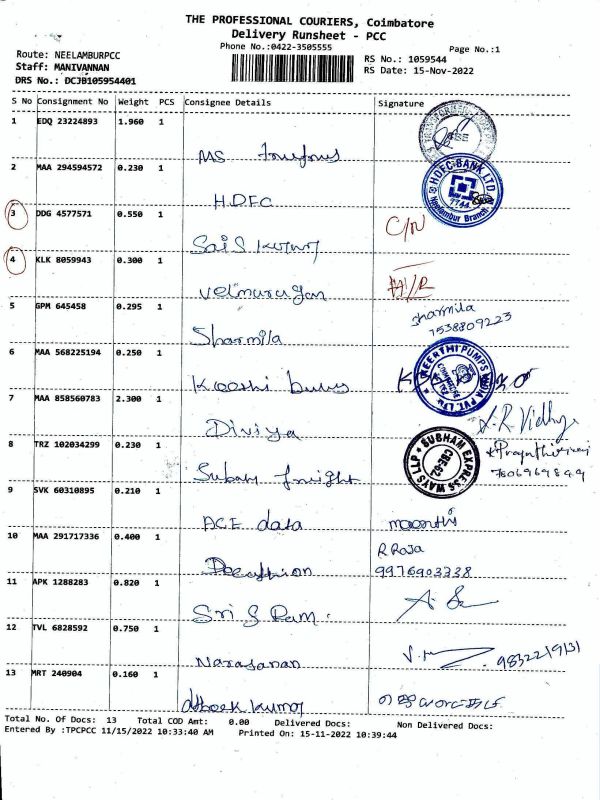 THE PROFESSIONAL COURIERS, Coimbatore
Delivery Runsheet - PCC
Phone No.:0422-3505555
Page No.:1
Route: NEELAMBURPCC
Staff: MANIVANNAN
DRS No.: DCJ0105954401
RS No.: 1059544
RS Date: 15-Nov-2022
S No Consignment No Weight PCS Consignee Details Signature
1 EDQ 23224893 1.960 1
MS
2 MAA 294594572 0.230 1
HDFC
HDFC BANK LTD
7744
Neelambur Branch
3 DDG 4577571 0.550 1 C/N
Sai S Kumar
4 KLK 8059943 0.300 1
Velmurugan
5 GPM 645458 0.295 1 Sharmila
7538809223
Sharmila
6 MAA 568225194 0.250 1
KEERTHI PUMPS INDIA PVT. LTD
7 MAA 858560783 2.300 1
Diviya
8 TRZ 102034299 0.230 1
SUBHAM EXPRESS WAYS LLP
CBE-62
9 SVK 60310895 0.210 1
ACE data
10 MAA 291717336 0.400 1 R Roja
9976903338
11 APK 1288283 0.820 1
Sri S Ram.
12 TVL 6828592 0.750 1
Narayanan
13 MRT 240904 0.160 1
Ashok Kumar
Total No. Of Docs: 13 Total COD Amt: 0.00 Delivered Docs: Non Delivered Docs:
Entered By :TPCPCC 11/15/2022 10:33:40 AM Printed On: 15-11-2022 10:39:44